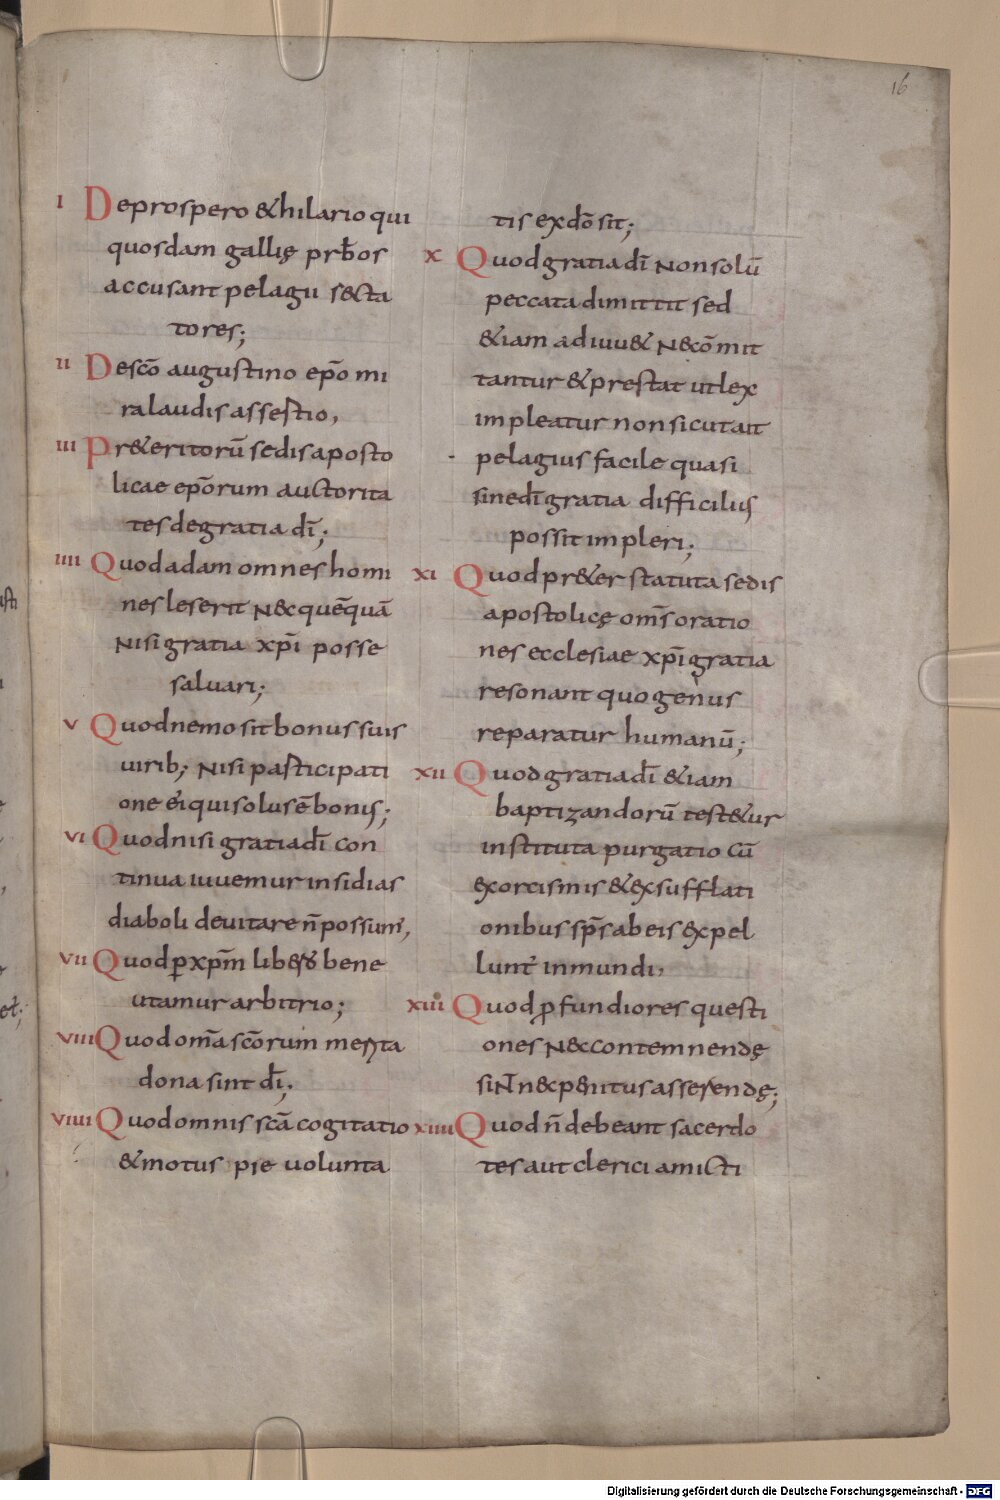 16
I De prospero & hilario qui
quosdam gallię prb̄os
accusant pelagii secta
tores;
II De sc̄o augustino ep̄o mi
ra laudis assestio,
III Pr&eritorū sedis aposto
licae ep̄orum auctorita
tes de gratia dī;
IIII Quod adam omnes homi
nes leserit nec quēquā
nisi gratia xp̄i posse
saluari;
V Quod nemo sit bonus suis
uirib; nisi pasticipati
one ei qui solus ē bonis;
VI Quod nisi gratia dī con
tinua iuuemur insidias
diaboli deuitare n̄ possum',
VII Quod ꝑ xp̄m bene
utamur arbitrio;
VIII Quod om̄a sc̄orum merita
dona sint dī;
VIIII Quod omnis sc̄a cogitatio
& motus pie uolunta
tis ex dō sit;
X Quod gratia dī non solū
peccata dimittit sed
&iam adiuu& n& cōmit
tantur & prestat ut lex
impleatur non sicut ait
pelagius facile quasi
sine dī gratia difficilius
possit impleri;
XI Quod pr&er statuta sedis
apostolicę om̄s oratio
nes ecclesiae xp̄i gratia
resonant quo genus
reparatur humanū;
XII Quod gratia dī &iam
baptizandorū test&ur
instituta purgatio cū
exorcismis & exsufflati
onibus sp̄s ab eis expel
lunt' inmundi,
XIII Quod ꝓfundiores questi
ones n& contemnendę
sint n& penitus asserendę;
XIIII Quod n̄ debeant sacerdo
tes aut clerici amicti
Digitalisierung gefördert durch die Deutsche Forschungsgemeinschaft - DFG